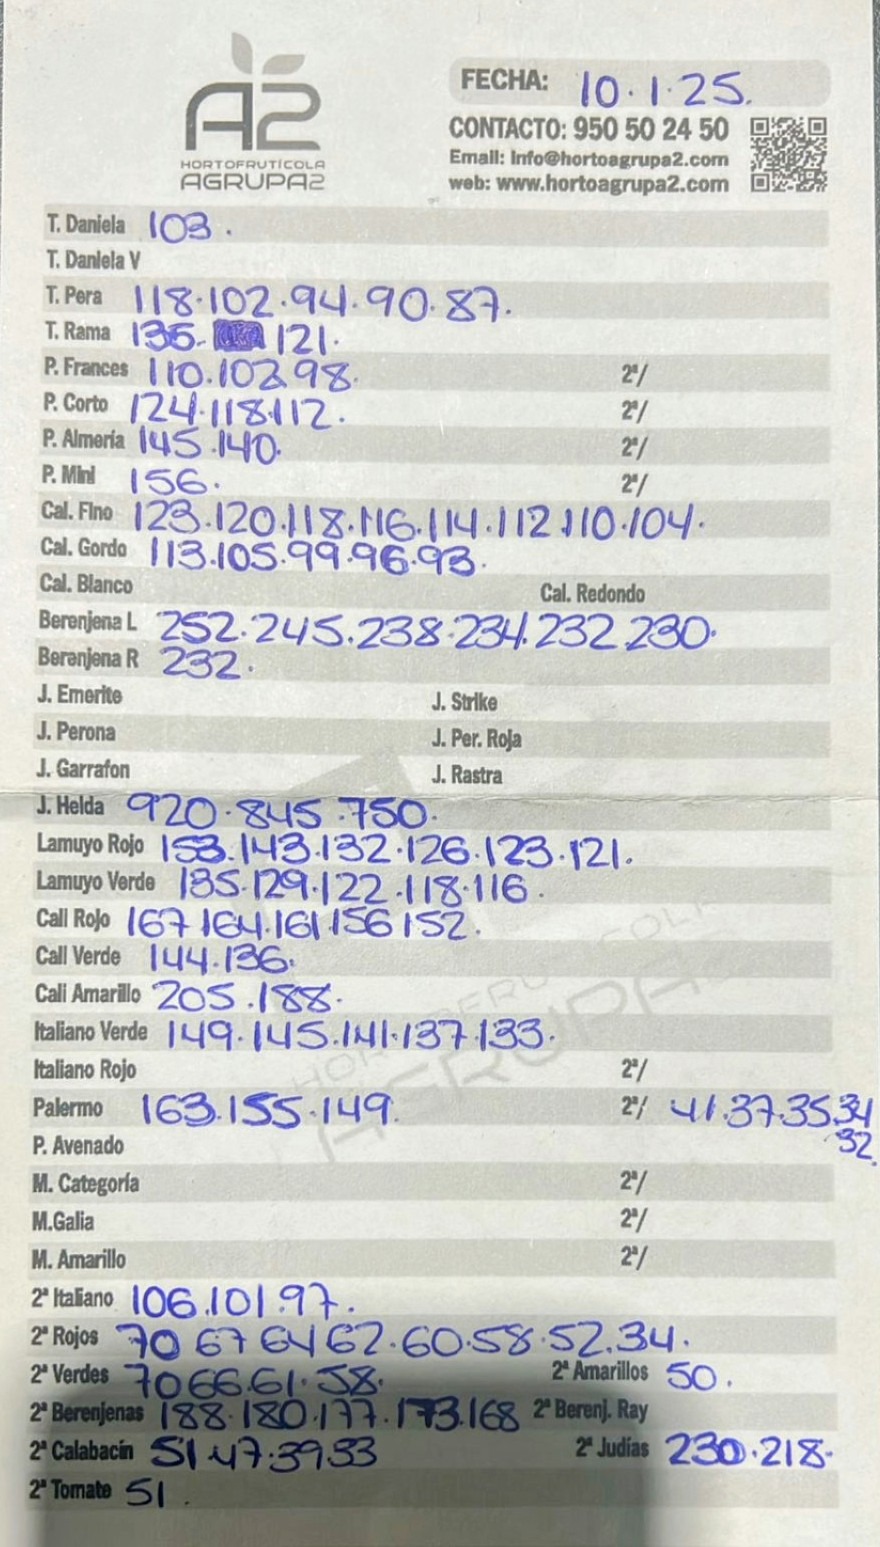 A2
HORTOFRUTÍCOLA
AGRUPA2
FECHA: 10.1.25.
CONTACTO: 950 50 24 50
Email: info@hortoagrupa2.com
web: www.hortoagrupa2.com
T. Daniela 103.
T. Daniela V
T. Pera 118.102.94.90.87.
T. Rama 136. 121.
P. Frances 110.102.98. 2ª/
P. Corto 124.118.112. 2ª/
P. Almería 145.140. 2ª/
P. Mini 156. 2ª/
Cal. Fino 123.120.118.116.114.112.110.104.
Cal. Gordo 113.105.99.96.93.
Cal. Blanco Cal. Redondo
Berenjena L 252.245.238.234.232.230.
Berenjena R 232.
J. Emerite J. Strike
J. Perona J. Per. Roja
J. Garrafon J. Rastra
J. Helda 920.845.750.
Lamuyo Rojo 153.143.132.126.123.121.
Lamuyo Verde 135.129.122.118.116.
Cali Rojo 167 164.161.156 152.
Cali Verde 144.136.
Cali Amarillo 205.188.
Italiano Verde 149.145.141.137.133.
Italiano Rojo 2ª/
Palermo 163.155.149. 2ª/ 41.37.35.34
32.
P. Avenado
M. Categoría 2ª/
M.Galia 2ª/
M. Amarillo 2ª/
2ª Italiano 106.101.97.
2ª Rojos 70 67 64 62.60.58.52.34.
2ª Verdes 70 66.61.58. 2ª Amarillos 50.
2ª Berenjenas 188.180.177.173.168 2ª Berenj. Ray
2ª Calabacín 51.47.39.33 2ª Judías 230.218.
2ª Tomate 51.
HORTOFRUTICOLA
AGRUPA2